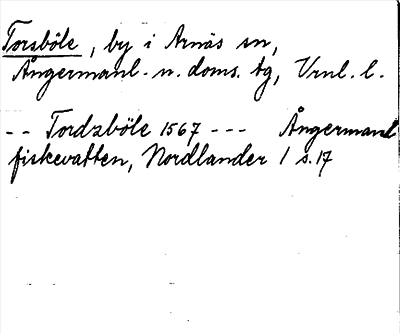 Torsböle, by i Arnäs sn,
Ångermanl. n. doms. tg, Vrnl. l.
-- Tordzböle 1567 --- Ångermanl
fiskevatten, Nordlander 1 s. 17